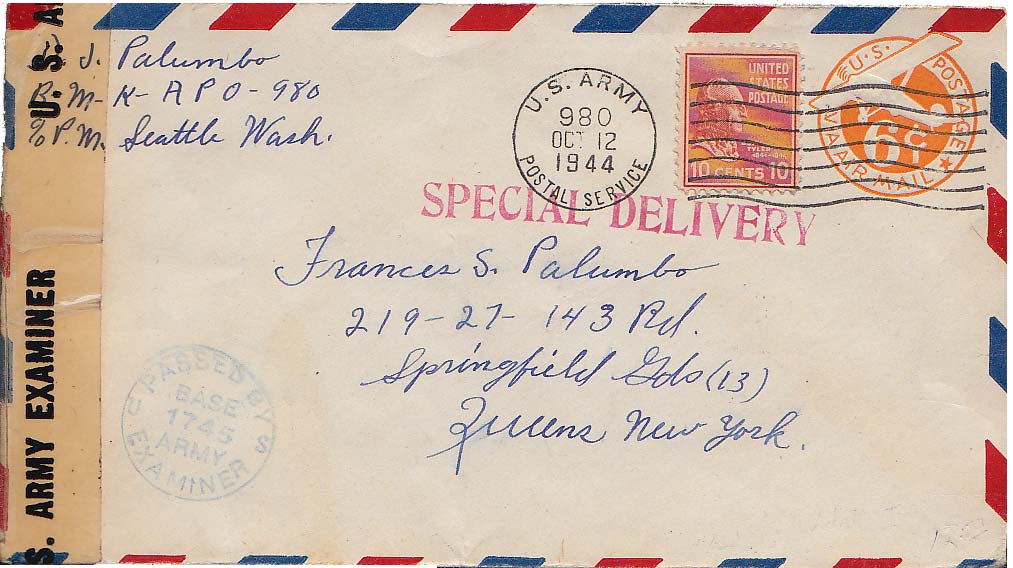 J. Palumbo
R.M-K- A P O - 980
% P.M. Seattle Wash.
U.S. ARMY
980
OCT 12
1944
POSTAL SERVICE
UNITED
STATES
POSTAGE
TYLER
1841-1845
10 CENTS 10
U.S. POSTAGE
6¢
VIA AIR MAIL
SPECIAL DELIVERY
Frances S. Palumbo
219-27- 143 Rd.
Springfield Gds (13)
Queens New York.
PASSED BY
BASE
1745
ARMY
EXAMINER
U S
U.S. A
S. ARMY EXAMINER